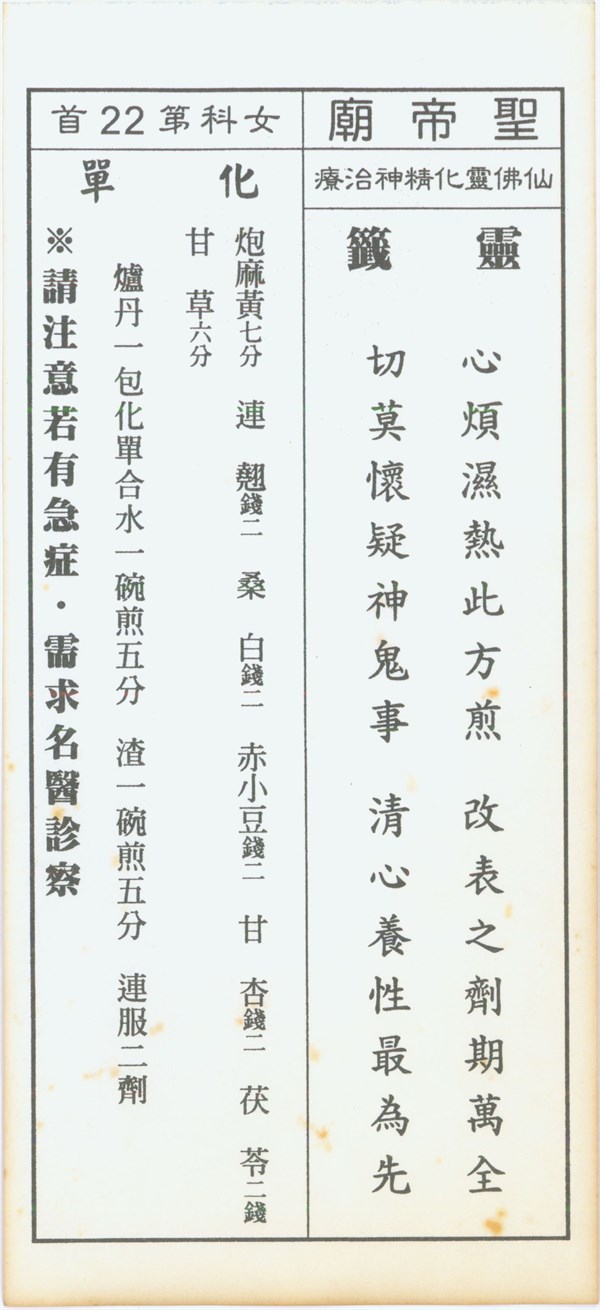 聖帝廟
仙佛靈化精神治療
靈籤
心煩濕熱此方煎 改表之劑期萬全
切莫懷疑神鬼事 清心養性最為先
女科第22首
化單
炮麻黃七分 連翹二錢 桑白二錢 赤小豆二錢 甘杏二錢 茯苓二錢
甘草六分
爐丹一包化單合水一碗煎五分 渣一碗煎五分 連服二劑
※請注意若有急症・需求名醫診察